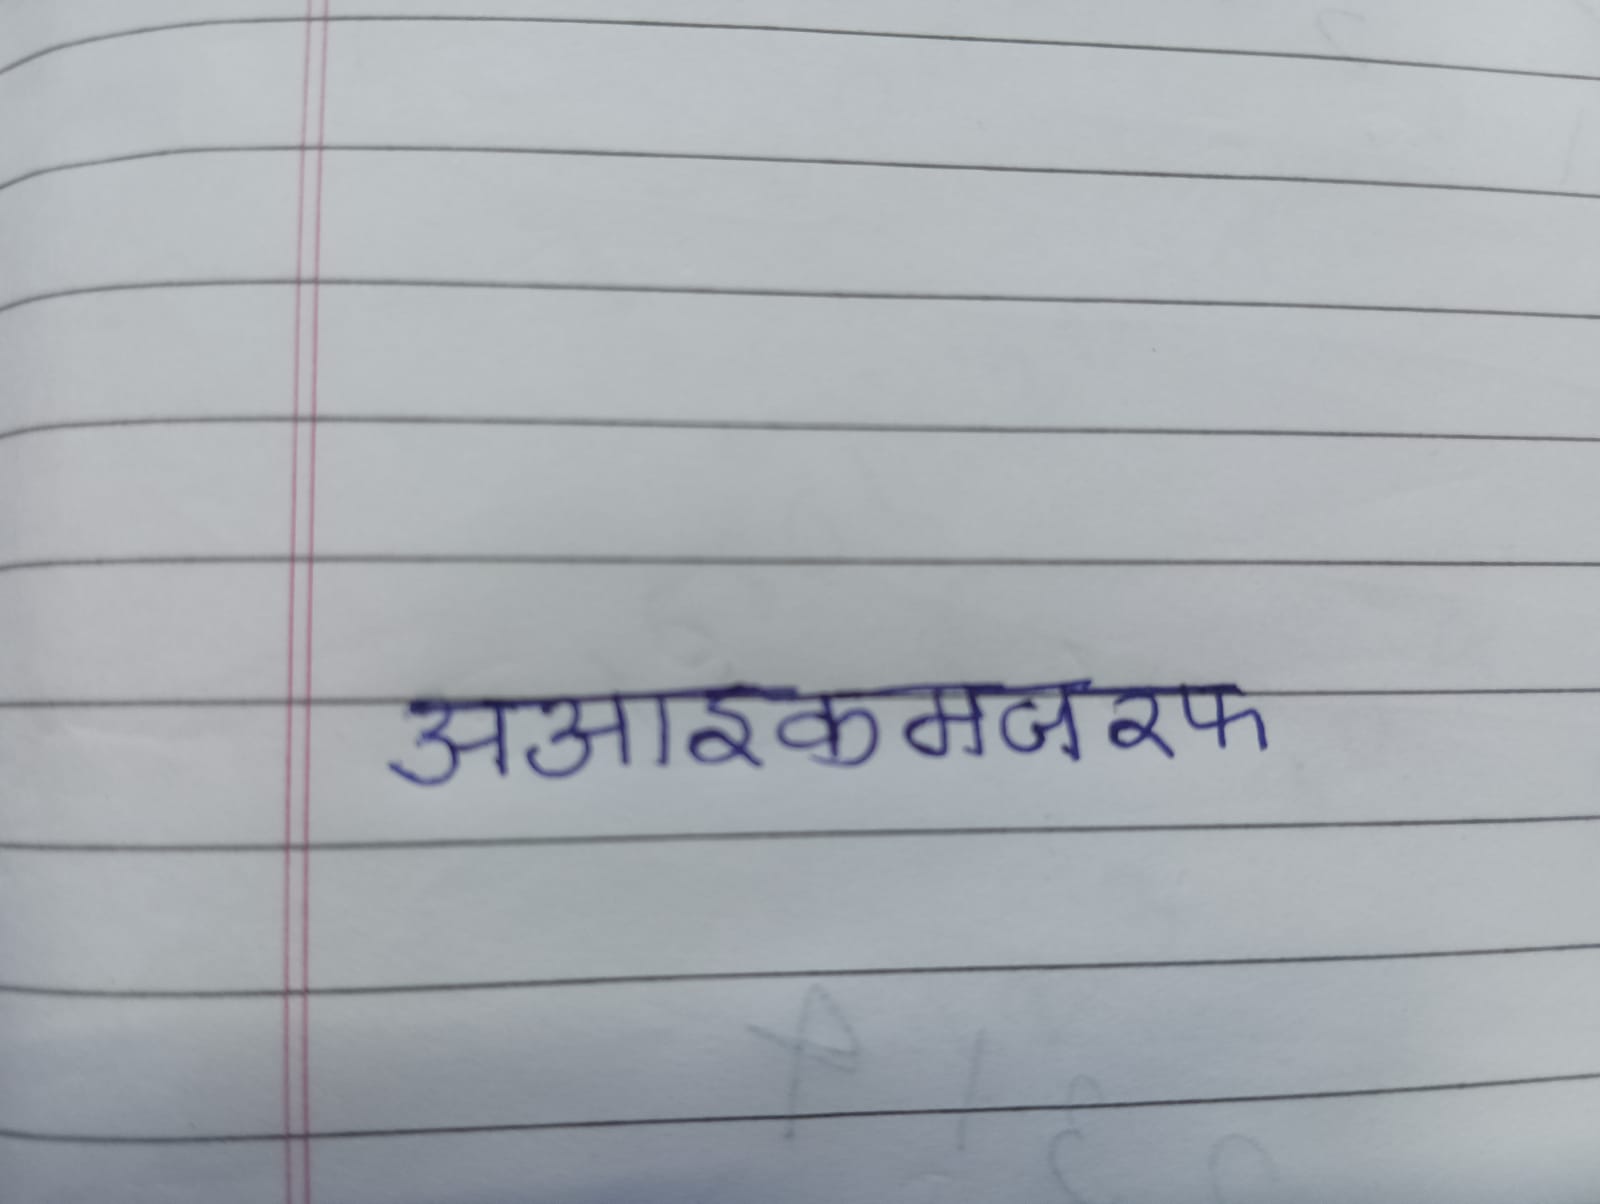 अआइकमजरफ